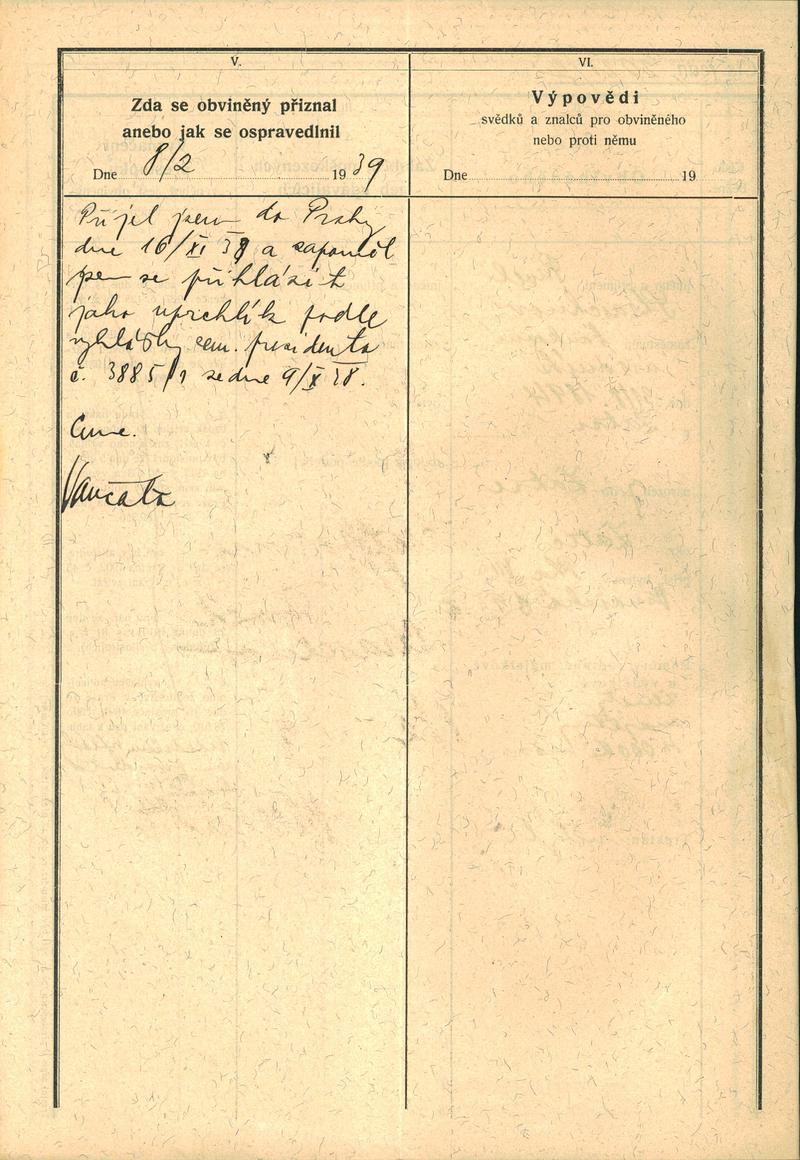 V.
Zda se obviněný přiznal
anebo jak se ospravedlnil
Dne 8/2 1939
Přijel jsem do Prahy
dne 16/XI 38 a zapoměl
jsem se přihlásit
jako uprchlík podle
vyhlášky zem. presidenta
č. 3885/1 ze dne 9/X 38.
Vančata
VI.
Výpovědi
svědků a znalců pro obviněného
nebo proti němu
Dne 19